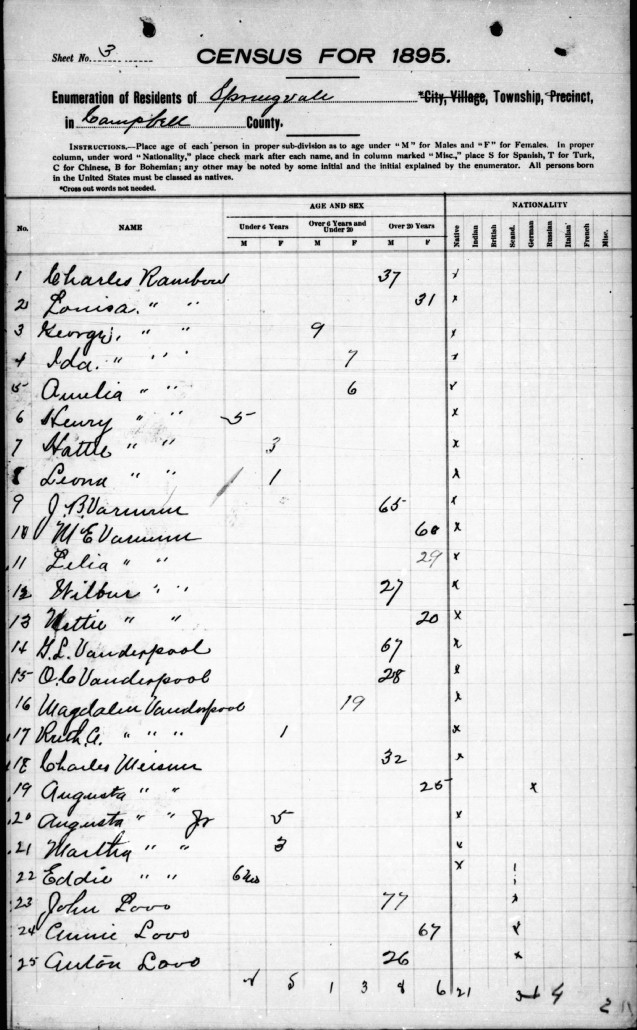 Sheet No. 3
CENSUS FOR 1895.
Enumeration of Residents of Springvale *City, Village, Township, Precinct,
in Campbell County.
INSTRUCTIONS.—Place age of each person in proper sub-division as to age under "M" for Males and "F" for Females. In proper
column, under word "Nationality," place check mark after each name, and in column marked "Misc.," place S for Spanish, T for Turk,
C for Chinese, B for Bohemian; any other may be noted by some initial and the initial explained by the enumerator. All persons born
in the United States must be classed as natives.
*Cross out words not needed.
No. NAME AGE AND SEX NATIONALITY
Under 6 Years Over 6 Years and Under 20 Over 20 Years
M F M F M F Native Indian British Scand. German Russian Italian French Misc.
1 Charles Rambow 37 x
2 Louisa. " " 31 x
3 George, " " 9 x
4 Ida. " " 7 x
5 Amelia " " 6 x
6 Henry " " 5 x
7 Hattie " " 3 x
8 Leona " " 1 x
9 J. B. Varnum 65 x
10 M E Varnum 60 x
11 Lelia " " 29 x
12 Wilbur " " 27 x
13 Nettie " " 20 x
14 G. L. Vanderpool 67 x
15 O. C Vanderpool 28 x
16 Magdalen Vanderpool 19 x
17 Ruth A. " " " 1 x
18 Charles Meisner 32 x
19 Augusta " " 25 x
20 Augusta " " Jr 5 x
21 Martha " " 3 x
22 Eddie " " 6 mo x
23 John Lovo 77 x
24 Annie Lovo 67 x
25 Anton Lovo 26 x
5 1 3 8 6 21 4